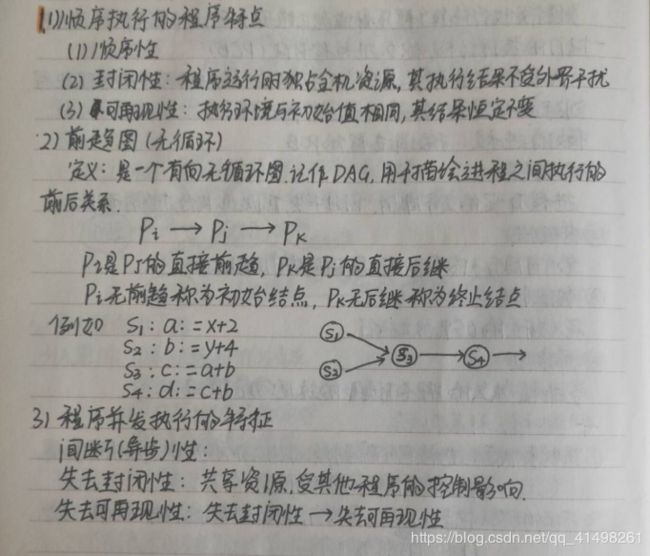 (1)顺序执行的程序特点
(1) 顺序性
(2) 封闭性：程序运行时独占全机资源，其执行结果不受外界干扰
(3) 可再现性：执行环境与初始值相同，其结果恒定不变
2) 前趋图(无循环)
定义：是一个有向无循环图，记作DAG，用于描绘进程之间执行的
前后关系.
Pi → Pj → Pk
Pi是Pj的直接前趋，Pk是Pj的直接后继
Pi无前趋称为初始结点，Pk无后继称为终止结点
例如 S1：a：=x+2
S2：b：=y+4
S3：c：=a+b
S4：d：=c+b
S1 S2 S3 S4
3) 程序并发执行的特征
间断(异步)性：
失去封闭性：共享资源，受其他程序的控制影响.
失去可再现性：失去封闭性→失去可再现性
https://blog.csdn.net/qq_41498261